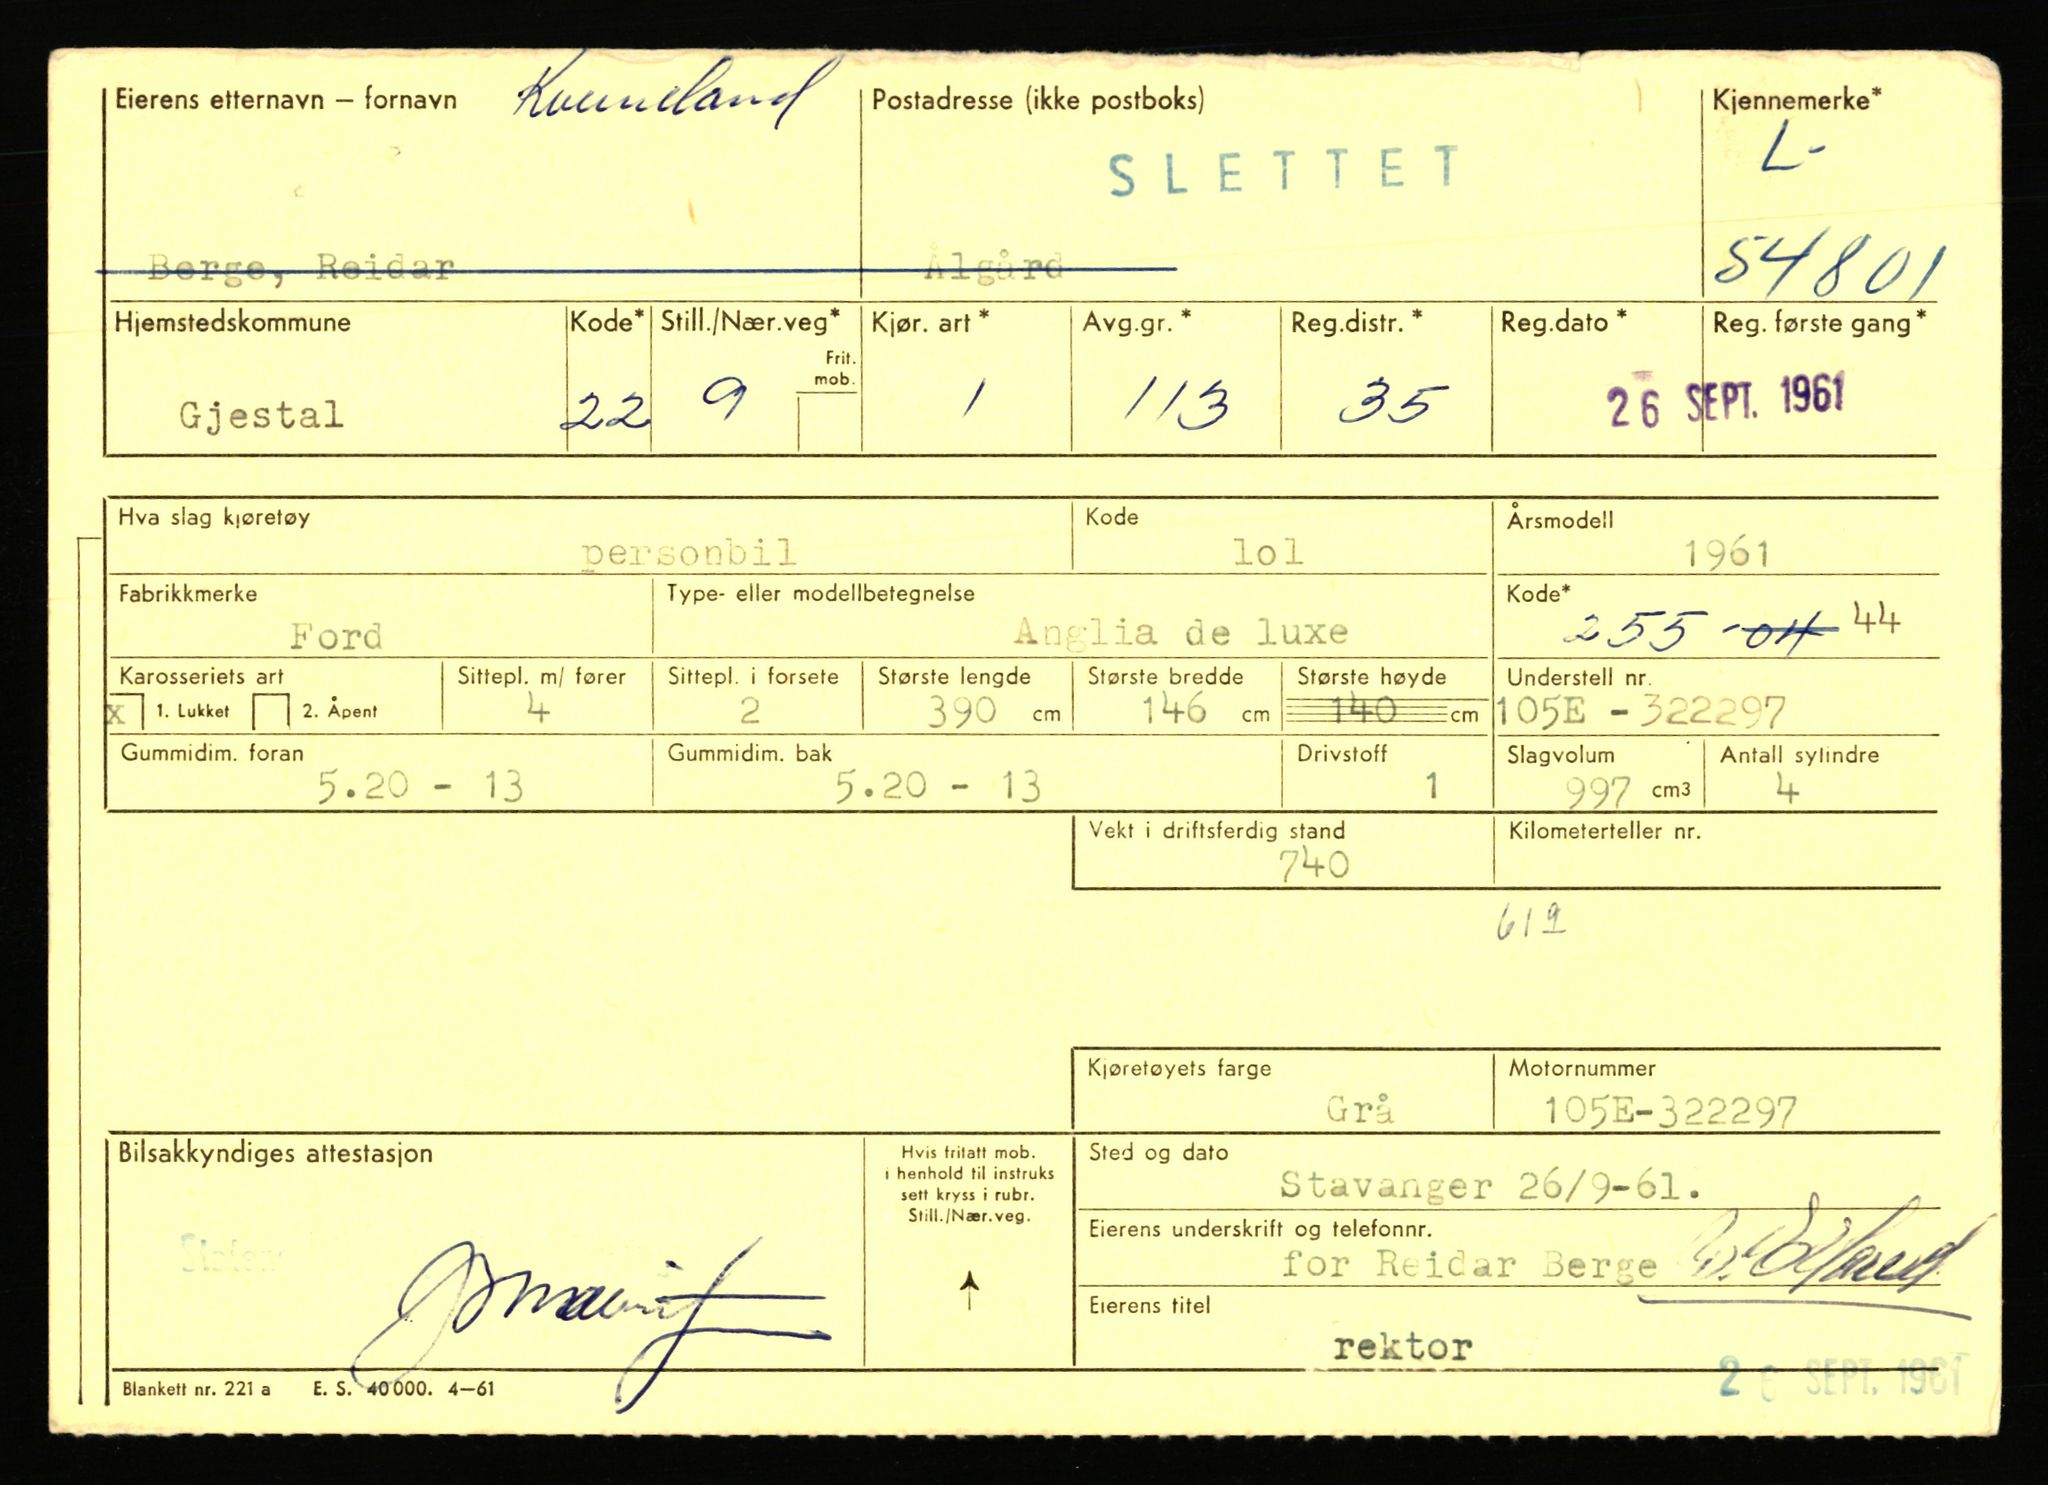 Eierens etternavn – fornavn Kverneland Postadresse (ikke postboks) Kjennemerke*
L-
SLETTET
Berge, Reidar Ålgård 54801
Hjemstedskommune Kode* Still./Nær.veg* Kjør. art* Avg.gr.* Reg.distr.* Reg.dato* Reg. første gang*
Frit.
mob.
Gjestal 22 9 1 113 35 26 SEPT. 1961
Hva slag kjøretøy Kode Årsmodell
personbil lol 1961
Fabrikkmerke Type- eller modellbetegnelse Kode*
Ford Anglia de luxe 255 -04 44
Karosseriets art Sittepl. m/ fører Sittepl. i forsete Største lengde Største bredde Største høyde Understell nr.
x 1. Lukket 2. Åpent 4 2 390 cm 146 cm 140 cm 105E - 322297
Gummidim. foran Gummidim. bak Drivstoff Slagvolum Antall sylindre
5.20 - 13 5.20 - 13 1 997 cm3 4
Vekt i driftsferdig stand Kilometerteller nr.
740
619
Kjøretøyets farge Motornummer
Grå 105E-322297
Bilsakkyndiges attestasjon Hvis fritatt mob. Sted og dato
i henhold til instruks
sett kryss i rubr.
Still./Nær.veg.
Stavanger 26/9-61.
Eierens underskrift og telefonnr.
for Reidar Berge
Eierens titel
rektor
26 SEPT. 1961
Blankett nr. 221 a E. S. 40000. 4–61